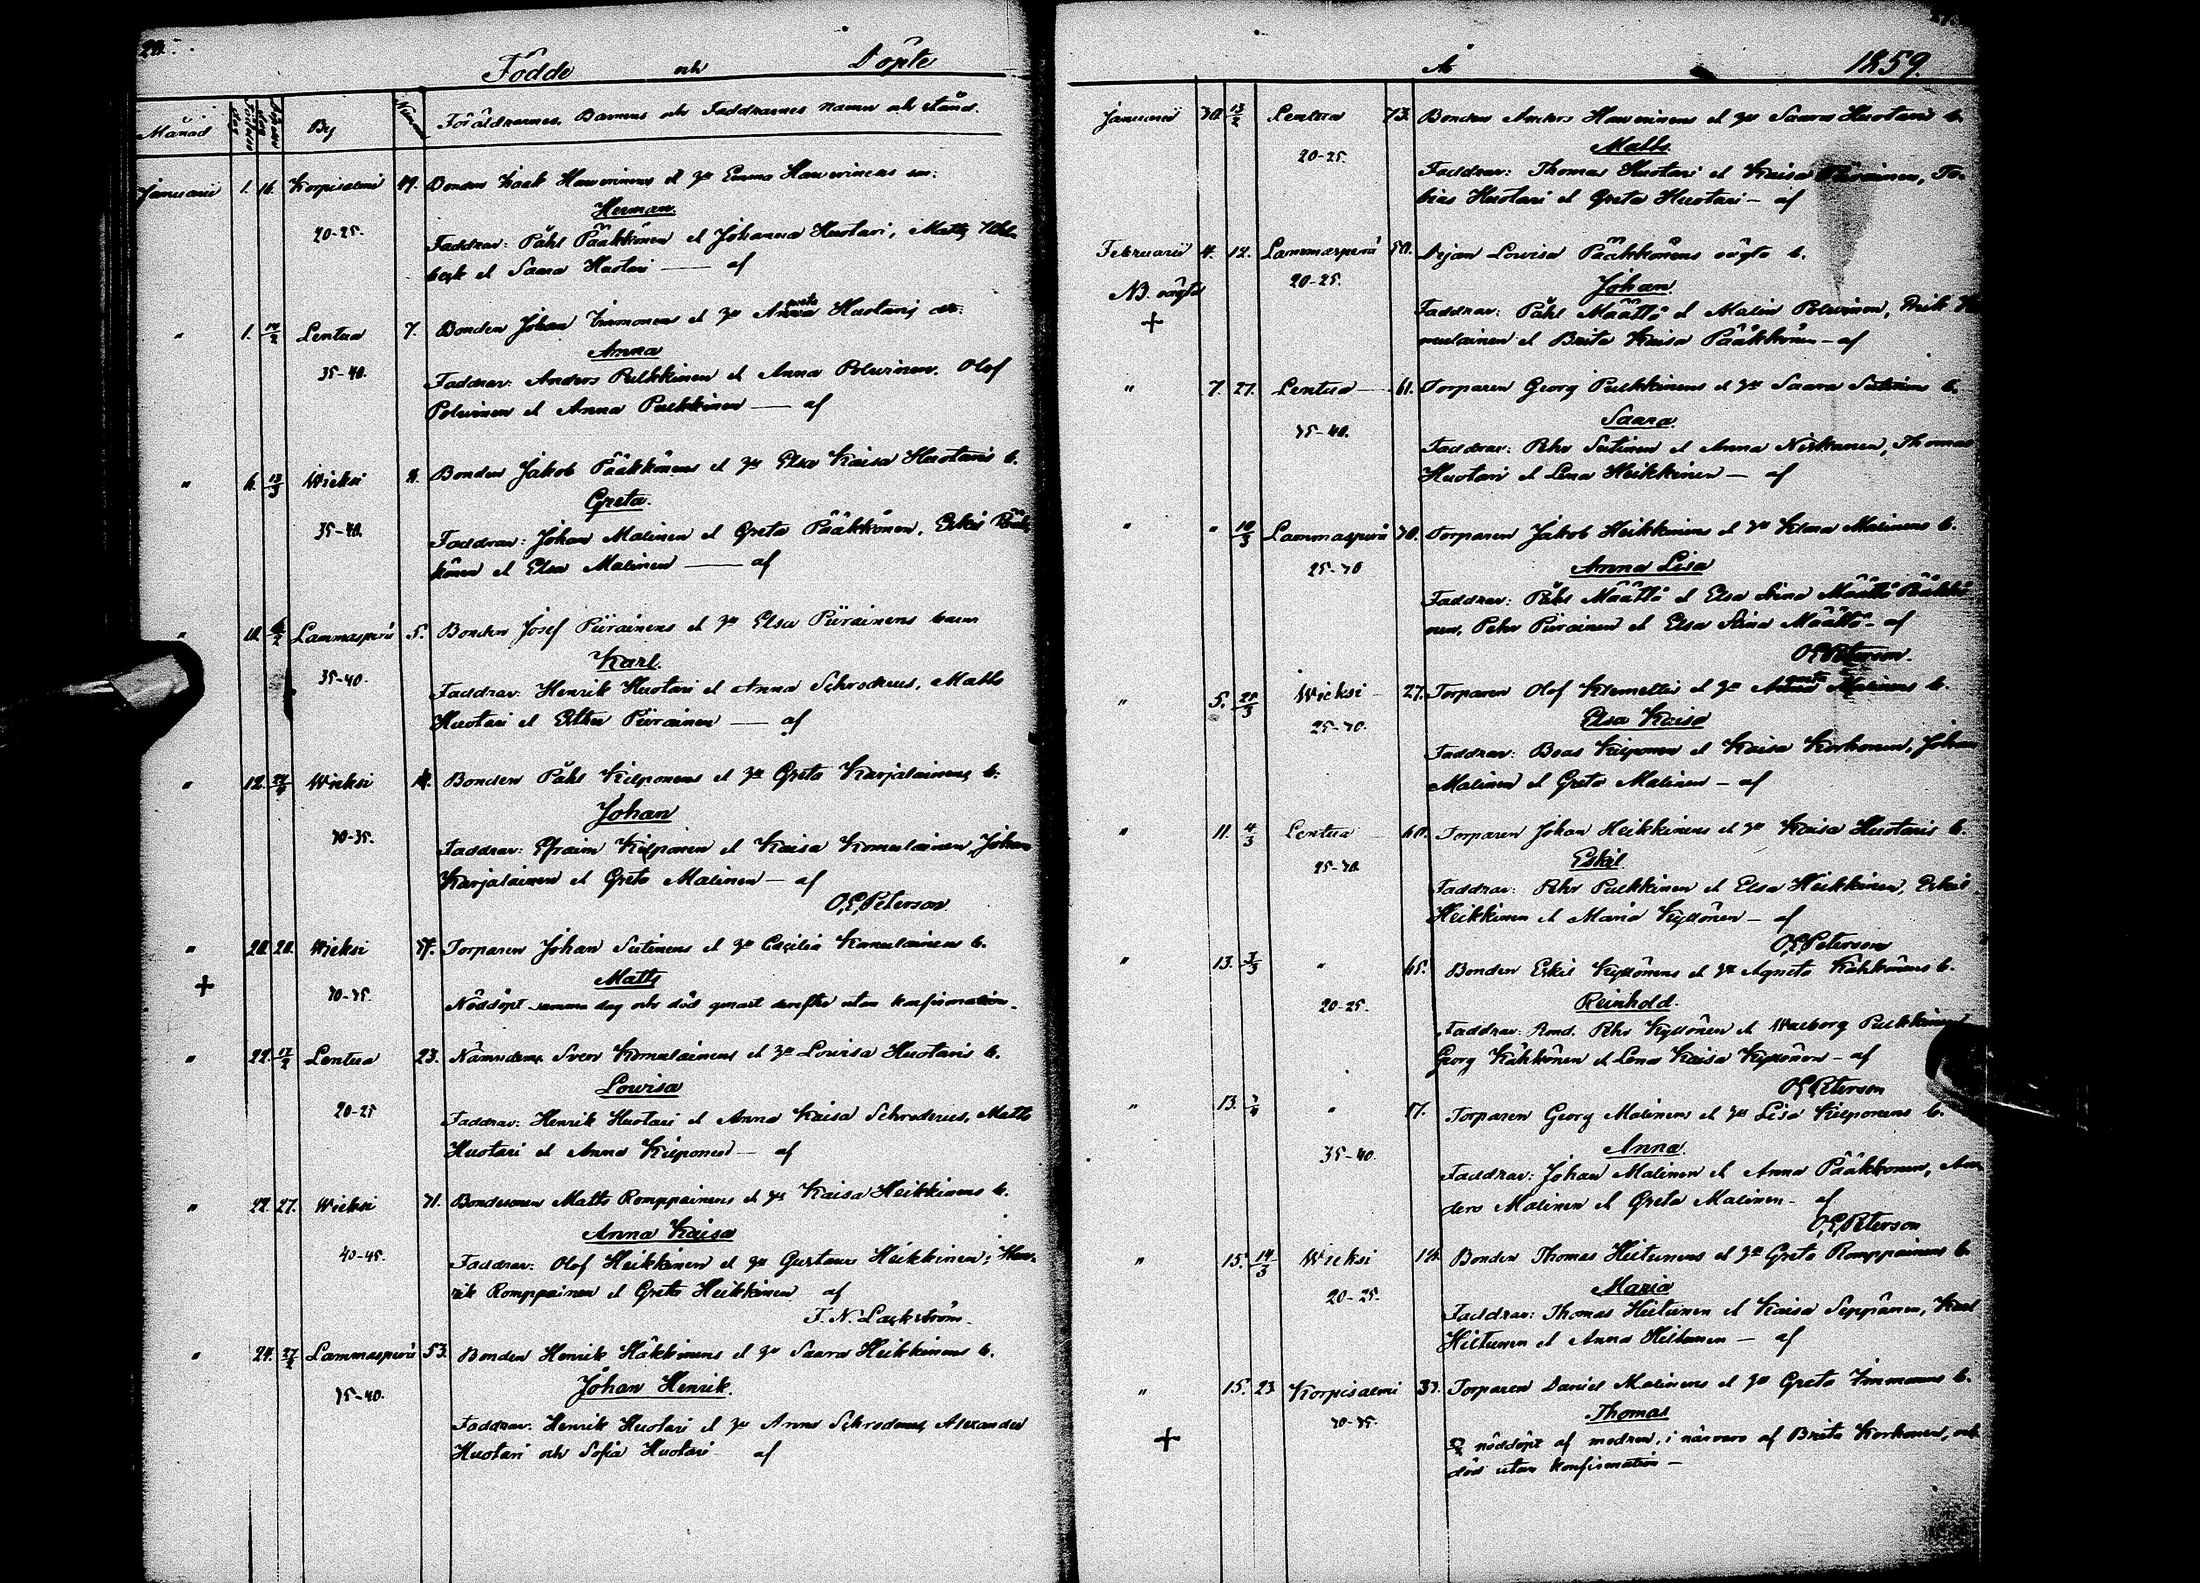 Födde och Döpte
Månad By Föräldrarnes, Barnens och Faddrarnes namn och stånd.
Januarii 1. 16. Korpisalmi 49. Bonden Isaak Hawerinens et Emma Hawerinens
Herman
20-25. Faddrar: Påhl Pääkkönen et Johanna Huotari, Matts
et Saara Huotari — af
" 1. Lentua 7. Bonden Johan Immonens et Anna Huotaris
Anna
35-40. Faddrar: Anders Pulkkinen et Anna Polvinen. Olof
Polvinen et Anna Pulkkinen — af
" 6. 13/3 Wieksi Bonden Jakob Pääkkönens et Elsa Kaisa Huotaris b.
Greta.
35-40. Faddrar: Johan Malinen et Greta Pääkkönen, Eskil Pääk-
könen et Elsa Malinen — af
" Lammasperä 5. Bonden Josef Piirainens et Elsa Piirainens barn
Karl.
35-40. Faddrar: Henrik Huotari et Anna Schroderus, Matts
Huotari et Esther Piirainen — af
" 12. Wieksi Bonden Påhl Kilponens et Greta Karjalainens b.
Johan
30-35. Faddrar: Efraim Kilponen et Kaisa Komulainen, Johan
Karjalainen et Greta Malinen — af
O,E,Peterson
" 20. 20. Wieksi Torparen Johan Sutinens et Cæcilia Komulainens b.
+ Matts
30-35. Nöddöpt samma dag och död genast derefter utan konfirmation.
" 22. 13/2 Lentua 23. Nämndem. Sven Komulainens et Lovisa Huotaris b.
Lovisa
20-25 Faddrar: Henrik Huotari et Anna Kaisa Schroderus, Matts
Huotari et Anna Kilponen — af
" 22. 27. Wieksi 31. Bondesonen Matts Romppainens et Kaisa Heikkinens b.
Anna Kaisa
40-45. Faddrar: Olof Heikkinen et Gustava Heikkinen; Hen-
rik Romppainen et Greta Heikkinen af
F. N. Lackström.
" 24. Lammasperä 53. Bonden Henrik Häkkinens et Saara Heikkinens b.
Johan Henrik.
35-40. Faddrar: Henrik Huotari et Anna Schroderus, Alexander
Huotari och Sofia Huotari af
År 1859.
Januarii 30. 13/2 Lentua 73. Bonden Anders Hawerinens et Saara Huotaris b.
Matts
20-25. Faddrar: Thomas Huotari et Kaisa Piirainen, To-
bias Huotari et Greta Huotari — af
Februarii 4. 12. Lammasperä 50. Pigan Lovisa Pääkkönens oägta b.
NB. oägta 20-25. Johan
+ Faddrar: Påhl Määttä et Malin Polvinen, Erik Ko-
mulainen et Brita Kaisa Pääkkönen — af
" 7. 27. Lentua 61. Torparen Georg Pulkkinens et Saara Sutinens b.
Saara
35-40. Faddrar: Pehr Sutinen et Anna Niskanen, Thomas
Huotari et Lena Heikkinen — af
" " 10/3 Lammasperä 70. Torparen Jakob Heikkinens et Klara Malinens b.
Anna Lisa
25-30 Faddrar: Påhl Määttä et Elsa Stina Pääkkö-
nen, Pehr Piirainen et Elsa Stina Määttä — af
O,E,Peterson.
" 5. Wieksi 27. Torparen Olof Klemettis et Malinens b.
Elsa Kaisa
25-30. Faddrar: Boas Kilponen et Kaisa Korhonen, Johan
Malinen et Greta Malinen — af
" 11. 4/3 Lentua 60. Torparen Johan Heikkinens et Kaisa Huotaris b.
Eskil
25-30. Faddrar: Pehr Pulkkinen et Elsa Heikkinen, Eskil
Heikkinen et Maria Kyllönen — af
O,E,Peterson
" 13. 3/3 " 65. Bonden Eskil Kyllönens et Agneta Kähkönens b.
Reinhold.
20-25. Faddrar: Bond. Pehr Kyllönen et Walborg Pulkkinen,
Georg Kähkönen et Lena Kaisa Kyllönen — af
O,E,Peterson
" 13. " 17. Torparen Georg Malinens et Lisa Kilponens b.
Anna.
35-40. Faddrar: Johan Malinen et Anna Pääkkönen, An-
ders Malinen et Greta Malinen — af
O,E,Peterson
" 15. 14/3 Wieksi Bonden Thomas Hiltunens et Greta Romppainens b.
Maria
20-25. Faddrar: Thomas Hiltunen et Kaisa Seppänen, Karl
Hiltunen et Anna Hiltunen — af
" 15. 23 Korpisalmi 33. Torparen Daniel Malinens et Greta Immonens b.
30-35. Thomas
+ nöddöpt af modren, i närvaro af Brita Korhonen, och
död utan konfirmation —